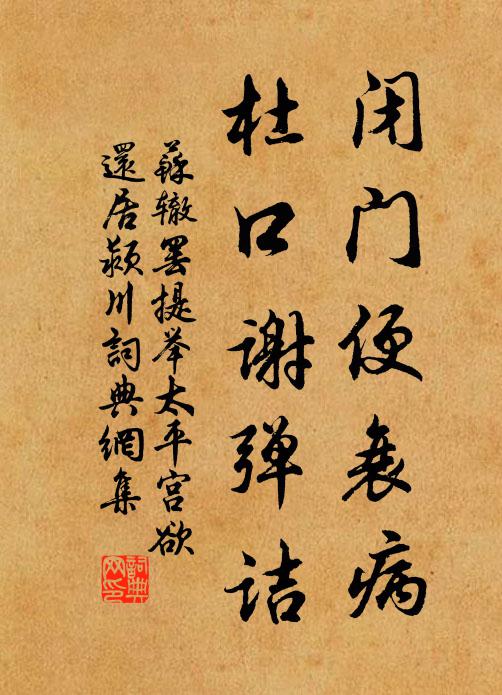 闭门便衰病
杜口谢弹诘
蘇辙罢提举太平宫欲
還居颍川詞典網集
詞典网印